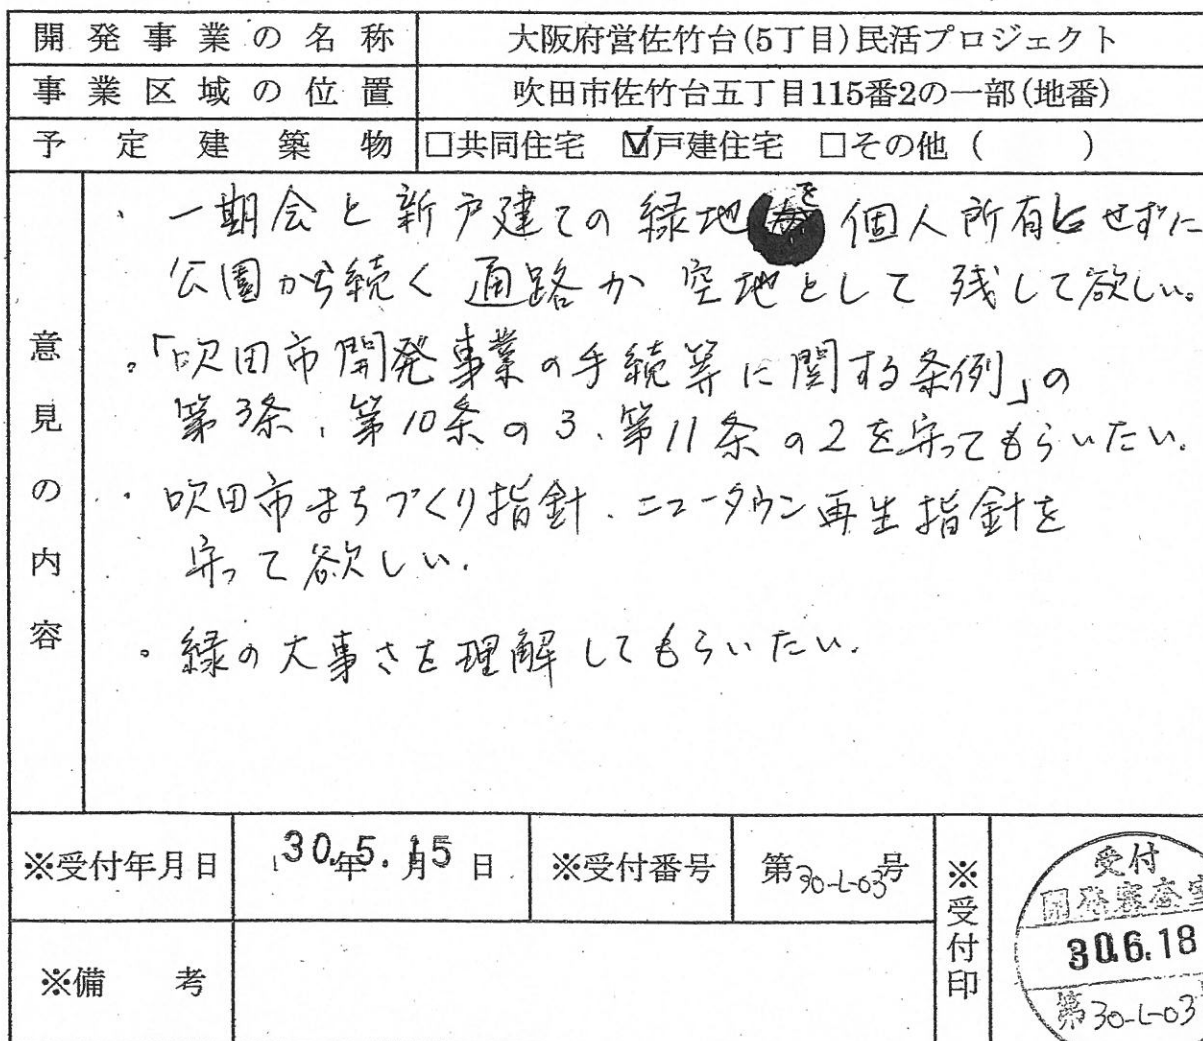 開発事業の名称 大阪府営佐竹台(5丁目)民活プロジェクト
事業区域の位置 吹田市佐竹台五丁目115番2の一部(地番)
予定建築物 □共同住宅 ☑戸建住宅 □その他( )
意見の内容
・一期会と新戸建ての緑地を個人所有とせずに
公園から続く通路か空地として残して欲しい。
。「吹田市開発事業の手続等に関する条例」の
第3条、第10条の3、第11条の2を守ってもらいたい。
・吹田市まちづくり指針、ニュータウン再生指針を
守って欲しい。
。緑の大事さを理解してもらいたい。
※受付年月日 30年5.月15日 ※受付番号 第30-L-03号 ※受付印
受付
開発審査室
30.6.18
第30-L-03
※備考